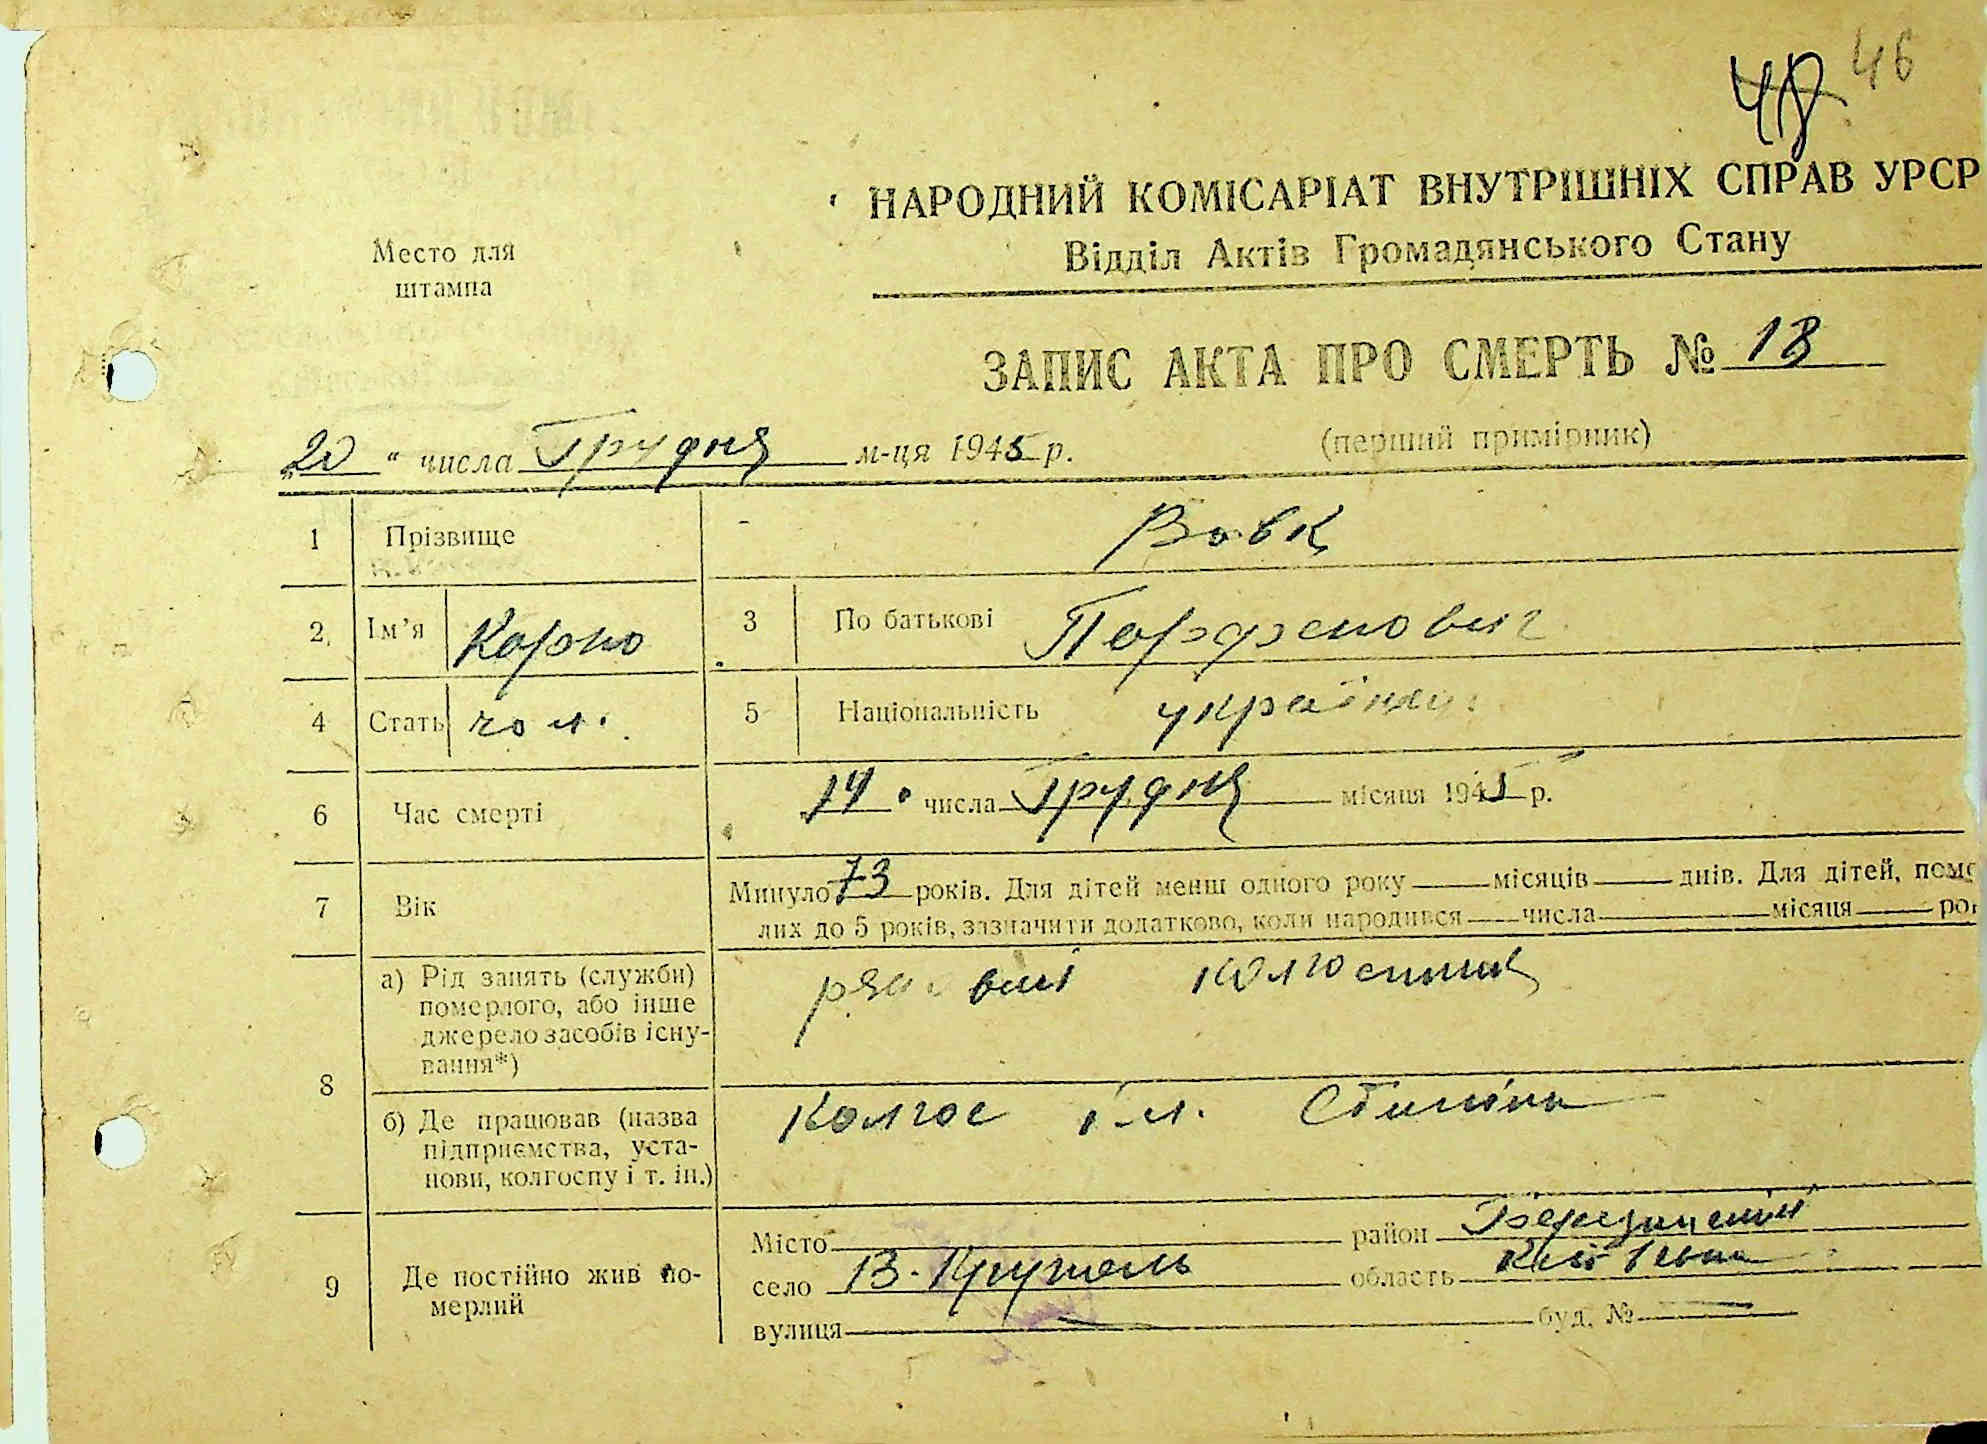 48 46
НАРОДНИЙ КОМІСАРІАТ ВНУТРІШНІХ СПРАВ УРСР
Відділ Актів Громадянського Стану
Место для
штампа
ЗАПИС АКТА ПРО СМЕРТЬ № 18
(перший примірник)
„20“ числа Грудня м-ця 1945 р.
1 Прізвище Вовк
2. Ім’я Карпо 3 По батькові Парфенович
4 Стать чол. 5 Національність україн
6 Час смерті 14 числа Грудня місяця 1945 р.
7 Вік Минуло 73 років. Для дітей менш одного року місяців днів. Для дітей, поме
лих до 5 років, зазначити додатково, коли народився числа місяця ро
8 а) Рід занять (служби)
померлого, або інше
джерело засобів існу-
вання*)
колгоспник
б) Де працював (назва
підприємства, уста-
нови, колгоспу і т. ін.)
Колгос ім. Сталіна
9 Де постійно жив по-
мерлий
Місто район Березанський
село В-Крупель область Київська
вулиця буд. №